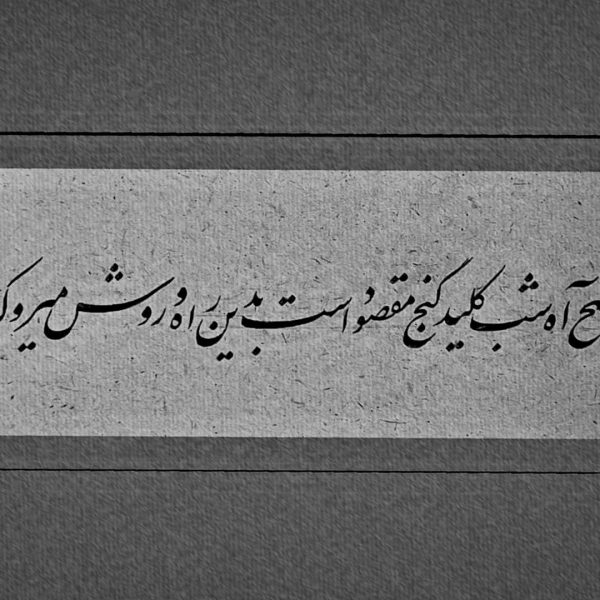 آه شب کلید گنج مقصود است بدین راه و روش میرو